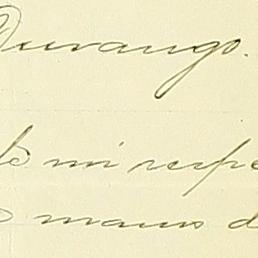 Durango.
mi respe
manos d